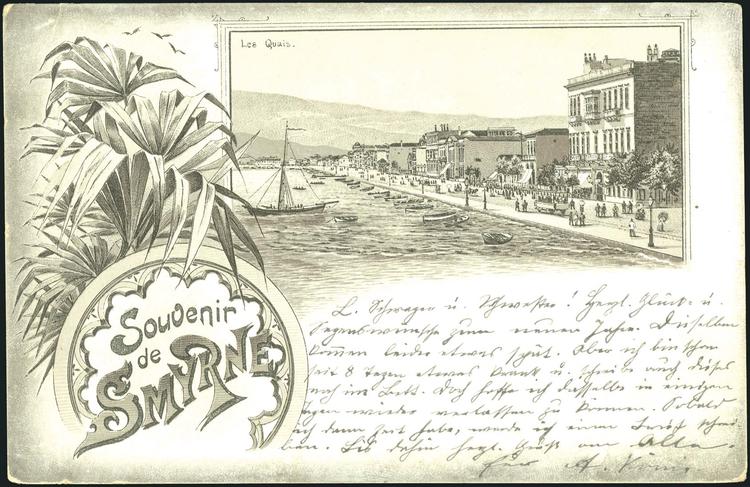 Les Quais.
Souvenir
de
SMYRNE
L. Schwager u. Schwester! Herzl. Glück- u.
Segenswünsche zum neuen Jahre. Dieselben
kommen leider etwas spät. Aber ich bin schon
seit 8 Tagen etwas krank u. schreibe auch dieses
noch im Bett. Doch hoffe ich dasselbe in einigen
Tagen wieder verlassen zu können. Sobald
ich dann Zeit habe, werde ich einen Brief schrei-
ben. Bis dahin herzl. Grüß an Alle.